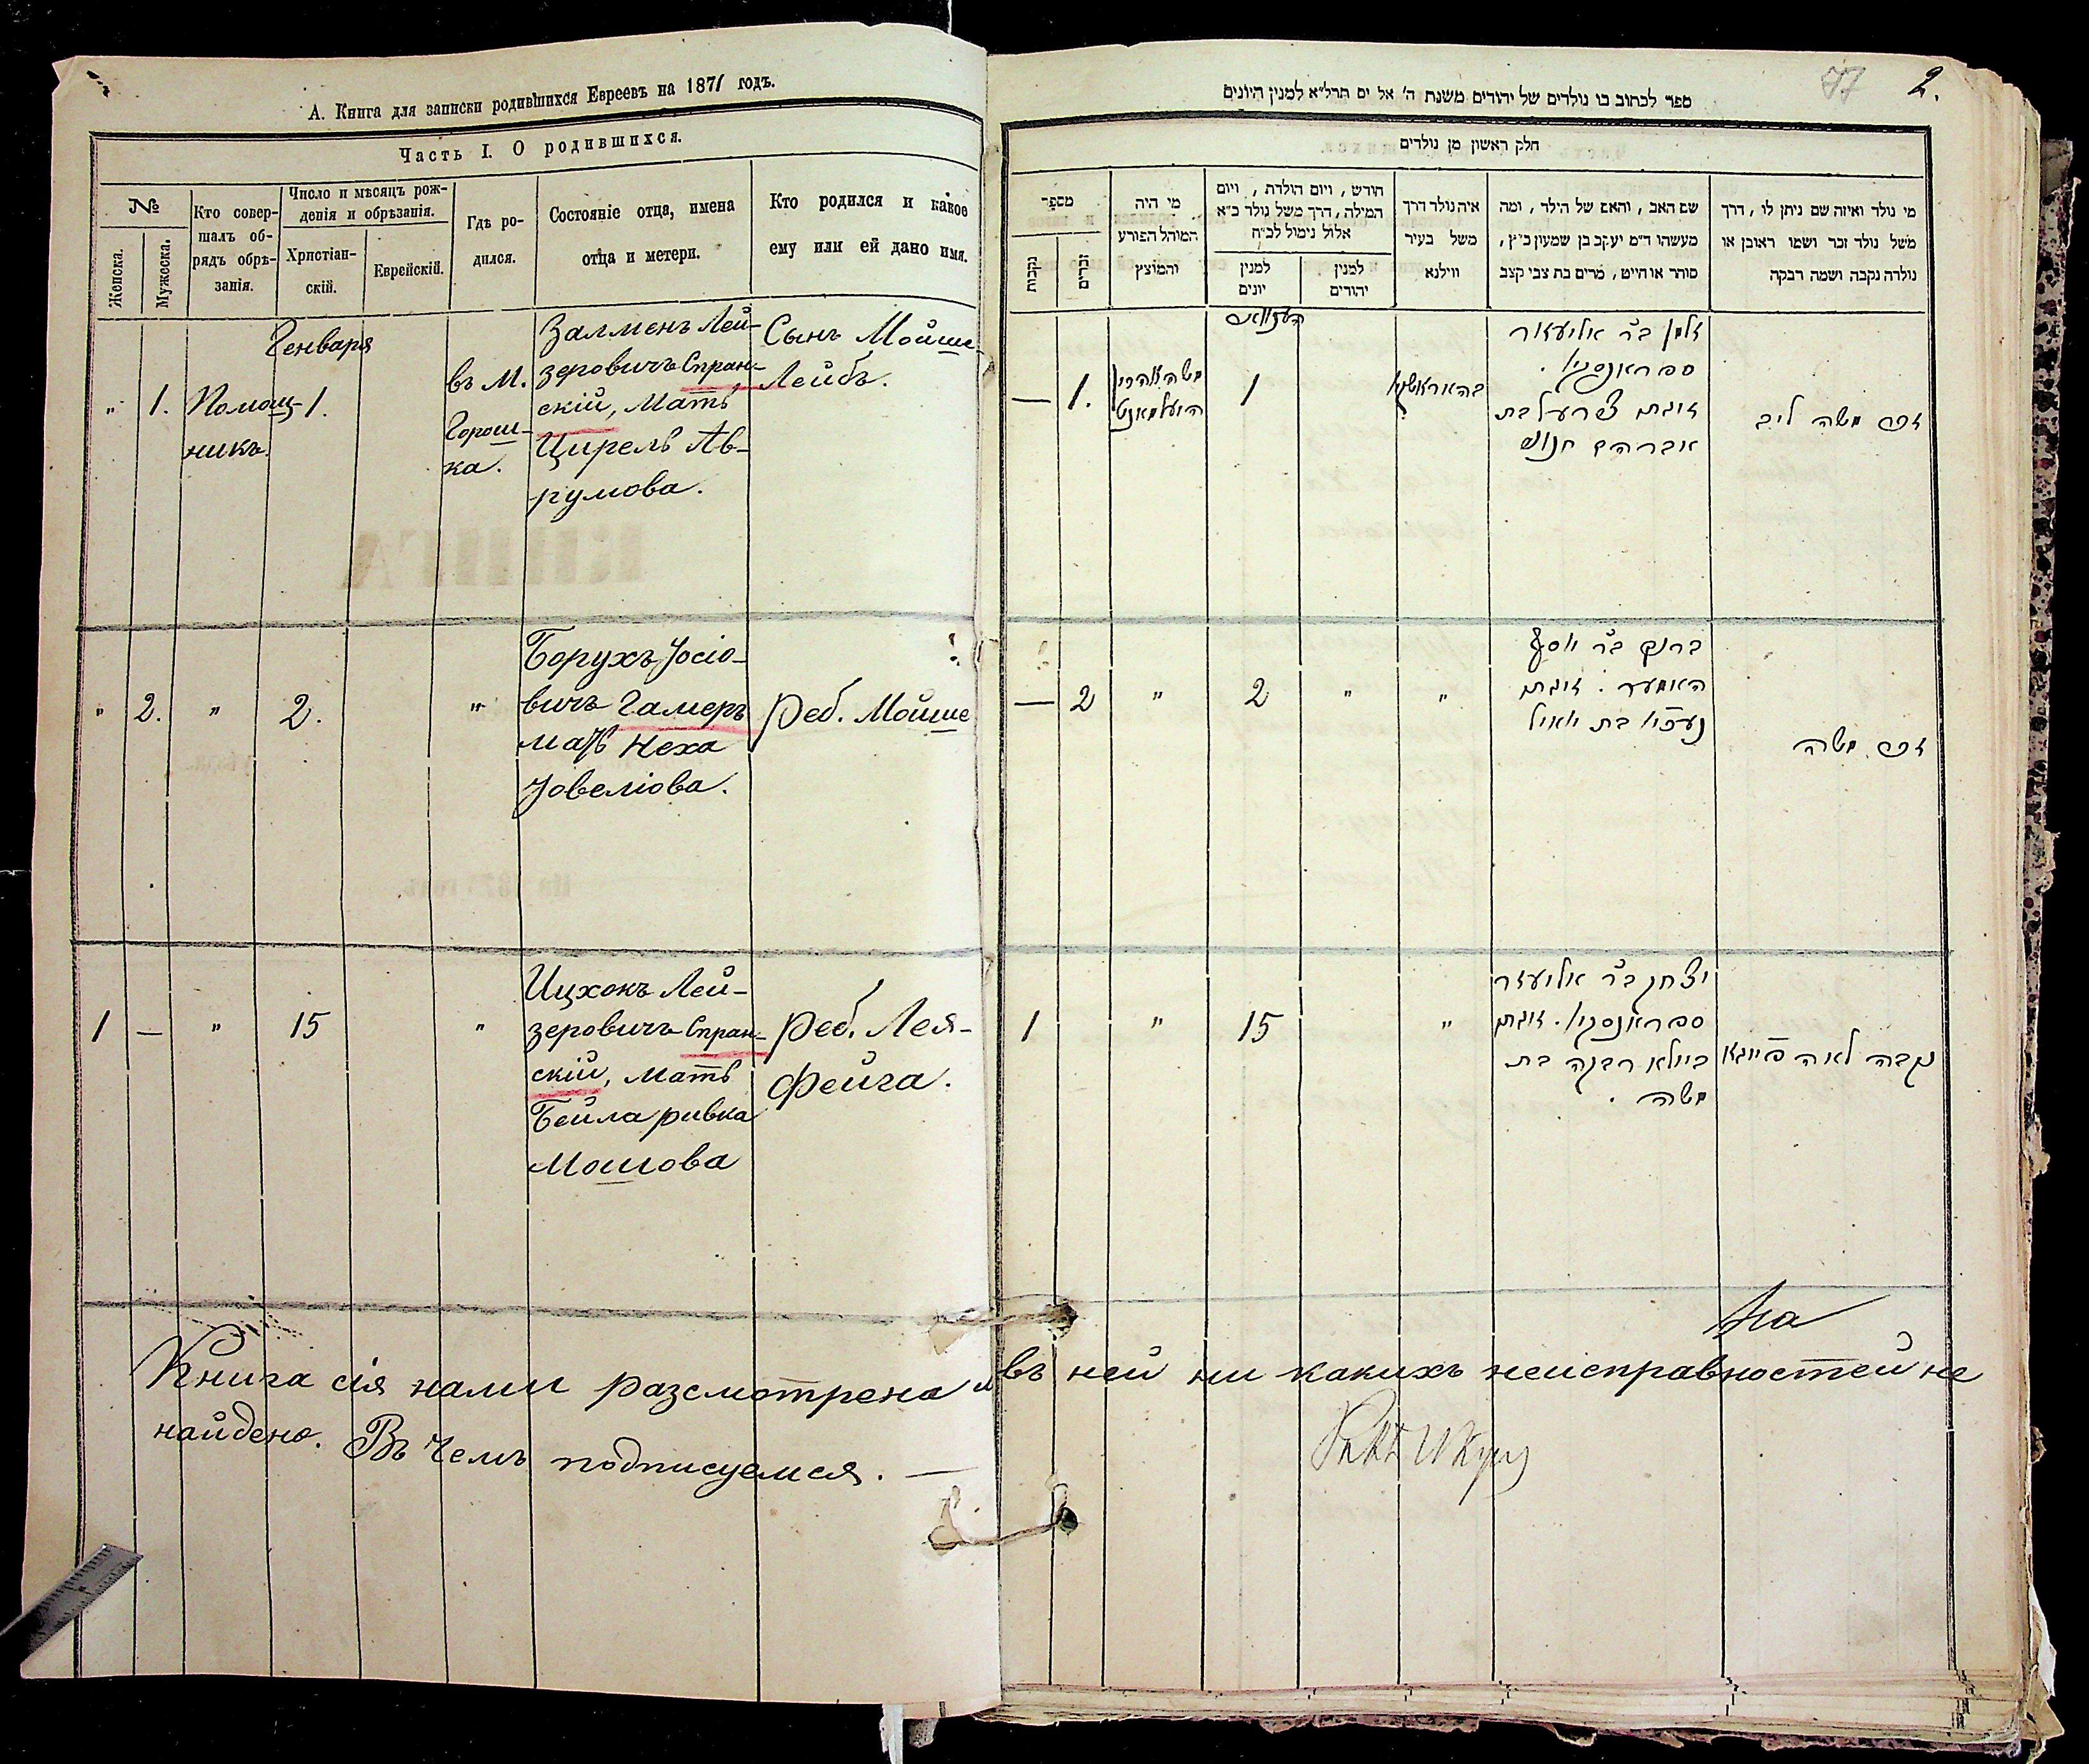 А. Книга для записки родившихся Евреевъ на 1871 годъ.
Часть I. О родившихся.
№
Женска.
Мужеска.
Кто совер-
шалъ об-
рядъ обрѣ-
занія.
Число и мѣсяцъ рож-
денія и обрѣзанія.
Христіан-
скій.
Еврейскій.
Гдѣ ро-
дился.
Состояніе отца, имена
отца и метери.
Кто родился и какое
ему или ей дано имя.
Генваря
" 1. Помощ-
никъ.
1.
въ м.
Горош-
ка.
Залменъ Лей-
зеровичъ Спран-
скій, Мать
Цирель Ав-
румова.
Сынъ Мойше-
Лейбъ.
" 2. " 2. "
Борухъ Іосіо-
вичъ Гамеръ
мать Неха
Іовеліова.
Реб. Мойше
1 — " 15 "
Ицхокъ Лей-
зеровичъ Спран-
скій, Мать
Бейла ривка
Мошова
Реб. Лея-
Фейга.
Книга сія нами разсмотрена и
найдено. Въ чемъ подписуемся. —
77 2.
ספר לכתוב בו נולדים של יהודים משנת ה' אל ים תרל"א למנין היונים
חלק ראשון מן נולדים
מספר
נקבות
זכרים
מי היה
המוהל הפורע
והמוצץ
חודש, ויום הולדת, ויום
המילה, דרך משל נולד כ"א
אלול נימול לכ"ח
למנין
יונים
למנין
יהודים
איה נולד דרך
משל בעיר
ווילנא
שם האב, והאם של הילד, ומה
מעשהו ד"מ יעקב בן שמעון כ"ץ,
סוחר או חייט, מרים בת צבי קצב
מי נולד ואיזה שם ניתן לו, דרך
משל נולד זכר ושמו ראובן או
נולדה נקבה ושמה רבקה
— 1.
1
זלמן ב"ר אליעזר
ספראנסקי.
זוגתו צירעל בת
אברהם
זכר משה ליב
— 2 " 2 " "
ברוך ב"ר יוסף
האמער. זוגתו
נעכי בת יואיל
זכר. משה
1 " 15 "
יצחק ב"ר אליעזר
ספראנסקי. זוגתו
ביילא רבקה בת
משה.
נקבה לאה פייגא
въ ней ни какихъ неисправностей не